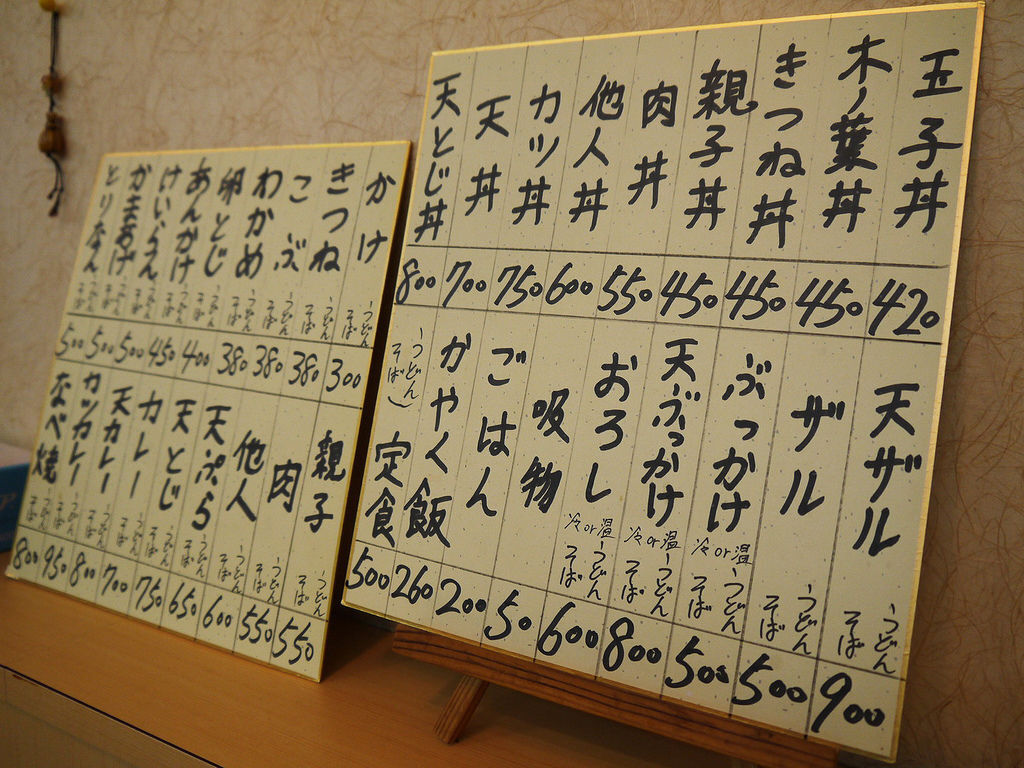 玉子丼 420
木ノ葉丼 450
きつね丼 450
親子丼 450
肉丼 550
他人丼 600
カツ丼 750
天丼 700
天とじ丼 800
天ザル うどん そば 900
ザル うどん そば 500
ぶっかけ 冷or温 うどん そば 500
天ぶっかけ 冷or温 うどん そば 800
おろし 冷or温 うどん そば 600
吸物 50
ごはん 200
かやく飯 260
(うどん そば) 定食 500
かけ うどん そば 300
きつね うどん そば 380
こぶ うどん そば 380
わかめ うどん そば 380
卵とじ うどん そば 400
あんかけ うどん そば 450
けいらん うどん そば 500
かまあげ うどん そば 500
とりなん うどん そば 500
親子 うどん そば 550
肉 うどん そば 550
他人 うどん そば 600
天ぷら うどん そば 650
天とじ うどん そば 750
カレー うどん そば 700
天カレー うどん そば 800
カツカレー うどん そば 950
なべ焼 うどん そば 800